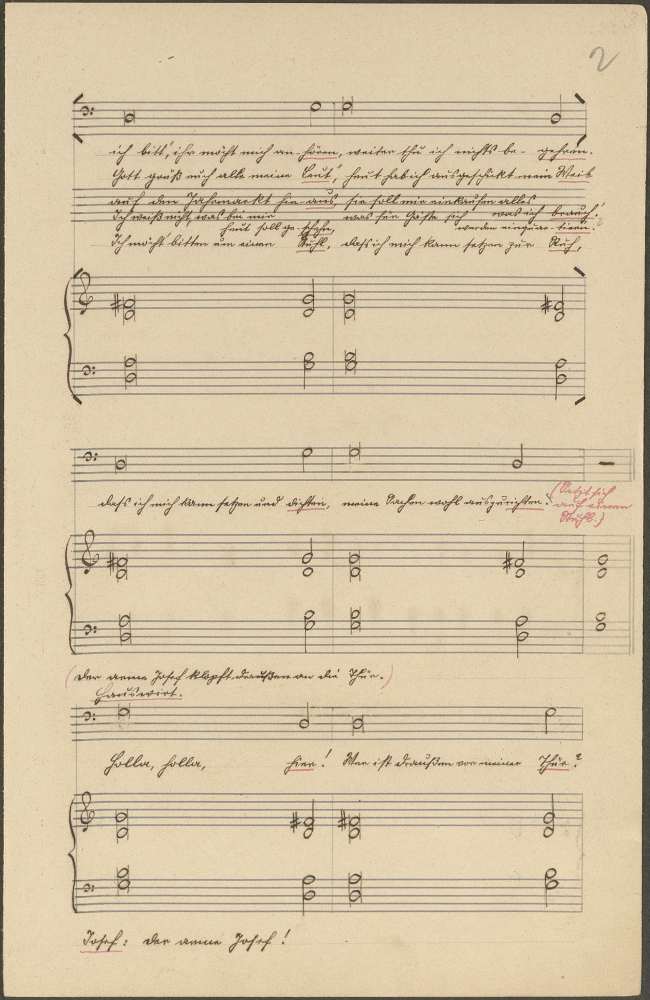 2
ich bitt', ihr möcht mich an-hören, weiter thu ich nichts be- gehren.
Gott grüß euch alle meine Leut', heut hab ich ausgeschickt mein Weib
auf den Jahrmarkt hin-aus, sie soll mir einkaufen alles
Ich weiß nicht, was bei mir was für Gäste sich was ich brauch'.
heut soll ge-schehn, werden einquar-tieren.
Ich möcht bitten um einen Stuhl, daß ich mich kann setzen zur Ruh,
daß ich mich kann setzen und dichten, meine Sachen wohl auszurichten.
(Setzt sich
auf einen
Stuhl.)
(Der arme Josef klopft draußen an die Thür.)
Hauswirt.
Holla, holla, hier! Wer ist draußen vor meiner Thür?
Josef: der arme Josef!